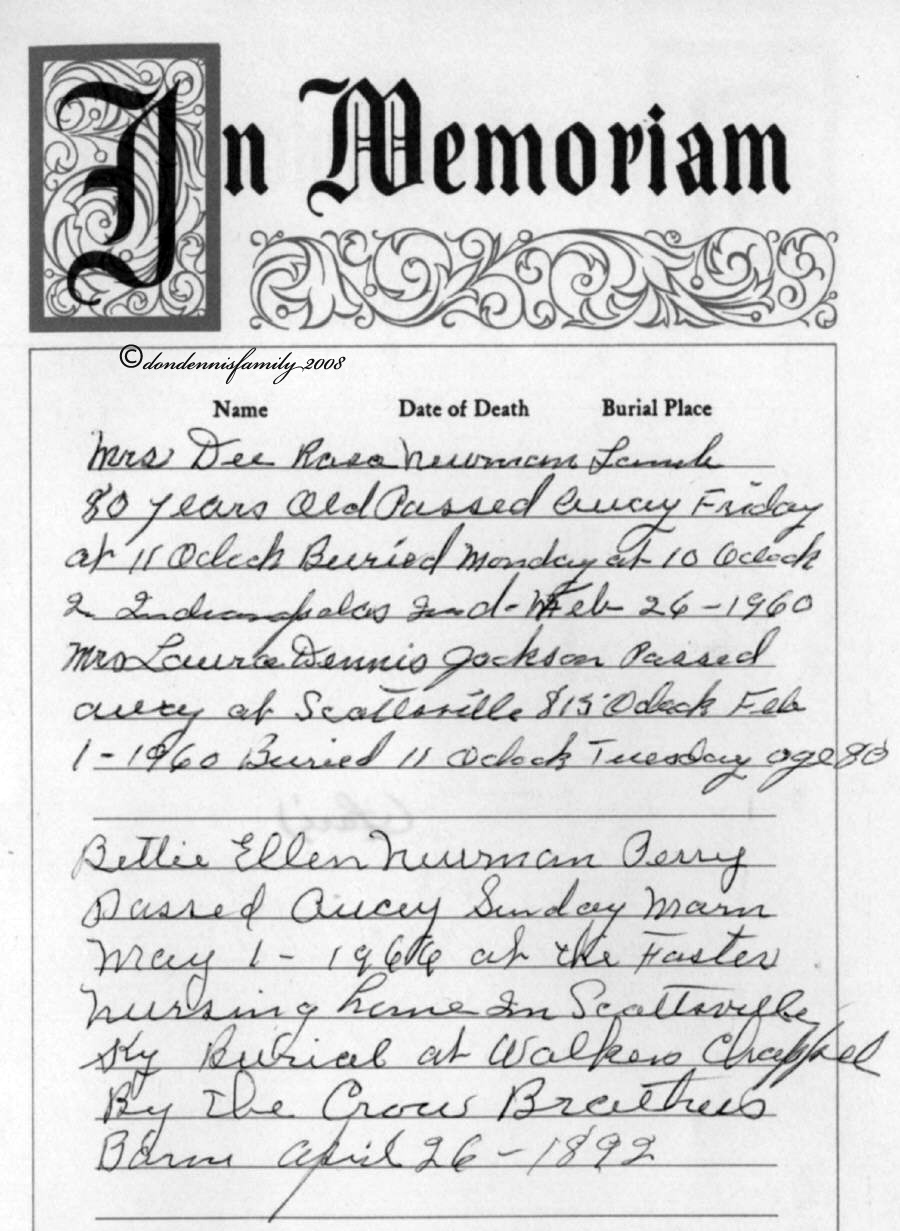 In Memoriam
©dondennisfamily 2008
Name Date of Death Burial Place
Mrs Dee Rosa Newman Lamb
80 years Old Passed away Friday
at 11 Oclock Buried Monday at 10 Oclock
In Indianapolas Ind- Feb 26-1960
Mrs Laura Dennis Jackson Passed
away at Scottsville 815 Oclock Feb
1-1960 Buried 11 Oclock Tuesday age 80
Bettie Ellen Newman Perry
Passed Away Sunday Morn
May 1-1966 at the Foster
Nursing home In Scottsville
Ky Burial at Walkers Chappel
By The Crow Brothers
Born April 26-1892